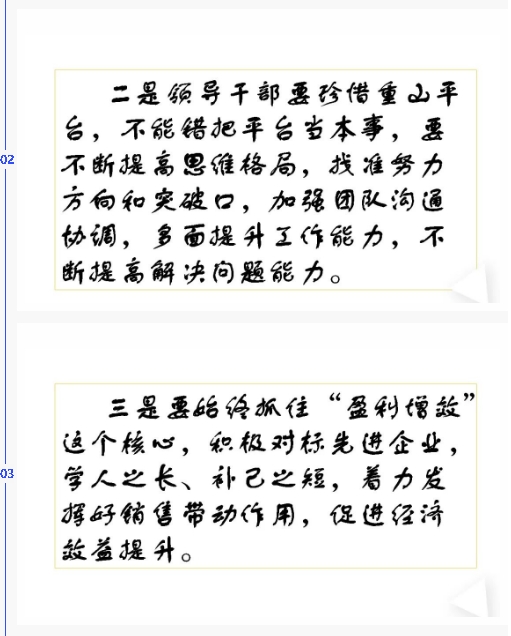 二是领导干部要珍借重山平
台，不能错把平台当本事，要
不断提高思维格局，找准努力
方向和突破口，加强团队沟通
协调，多面提升工作能力，不
断提高解决问题能力。
02
三是要始终抓住“盈利增效”
这个核心，积极对标先进企业，
学人之长、补己之短，着力发
挥好销售带动作用，促进经济
效益提升。
03